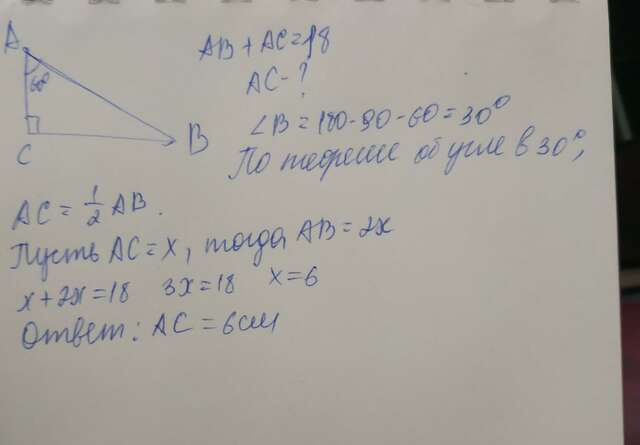 A
60°
C
B
AB + AC = 18
AC - ?
∠B = 180 - 90 - 60 = 30°
По теореме об угле в 30°,
AC = 1/2 AB.
Пусть AC = x, тогда AB = 2x
x + 2x = 18 3x = 18 x = 6
Ответ: AC = 6см